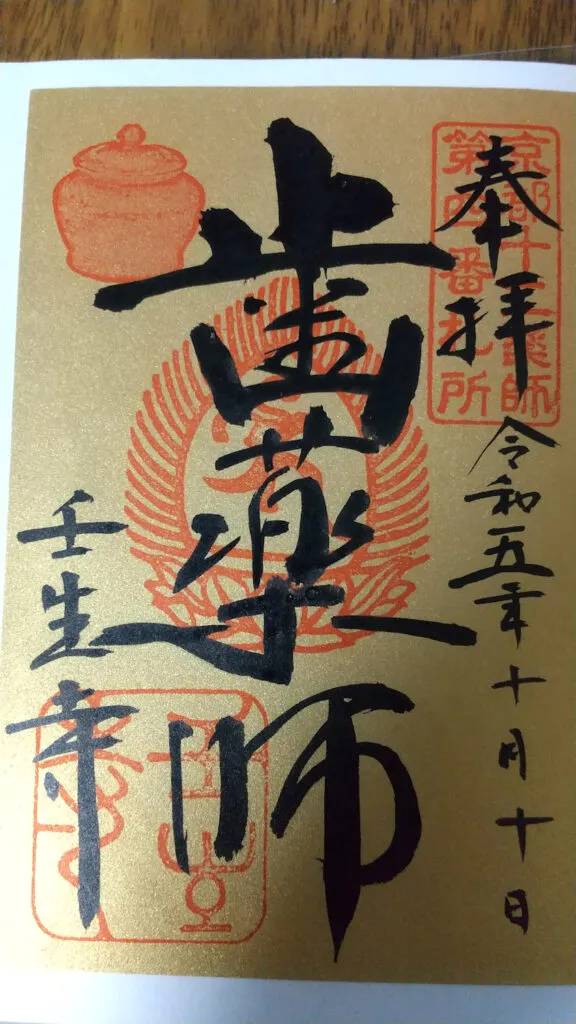 京都十二薬師
第四番札所
奉拝
令和五年十月十日
歯薬師
壬生寺